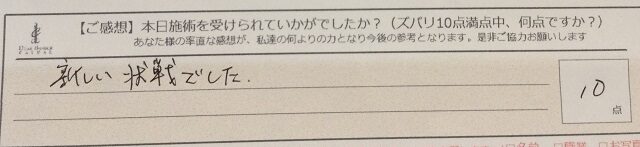 【ご感想】本日施術を受けられていかがでしたか？（ズバリ10点満点中、何点ですか？）
あなた様の率直な感想が、私達の何よりの力となり今後の参考となります。是非ご協力お願いします
新しい状戦でした.
10
点